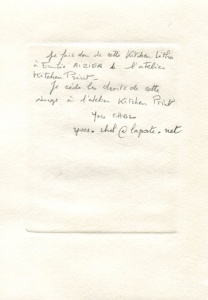 Je fais don de cette Kitchen Litho
à Émilie AIZIER & l'atelier
Kitchen Print.
Je cède les droits de cette
image à l'atelier Kitchen Print
@laposte.net